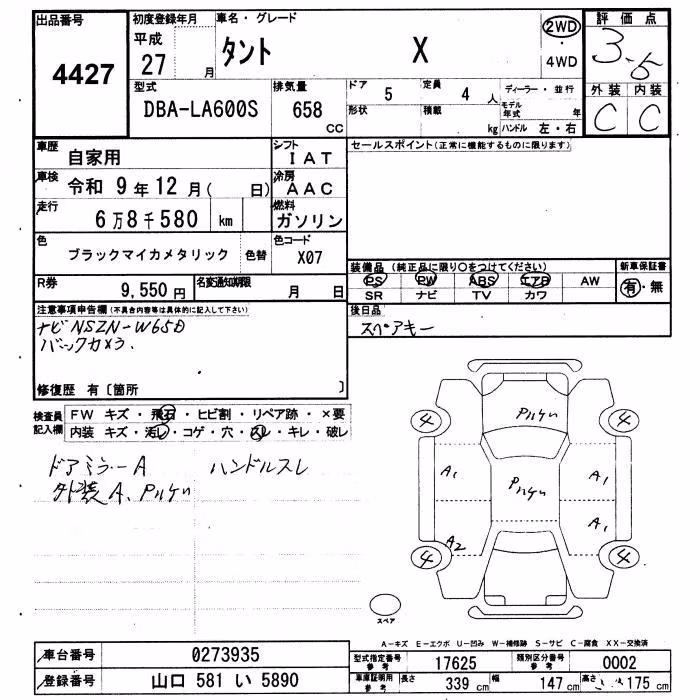 出品番号 4427
初度登録年月 平成 27 月
車名・グレード タント X
2WD・4WD
評価点 3.5
外装 C 内装 C
型式 DBA-LA600S
排気量 658 CC
ドア 5 定員 4 人
形状 積載 kg
ディーラー・並行
モデル年式 年
ハンドル 左・右
車歴 自家用
シフト IAT
セールスポイント(正常に機能するものに限ります)
車検 令和 9 年 12 月( 日)
冷房 AAC
走行 6万8千580 km
燃料 ガソリン
色 ブラックマイカメタリック 色替
色コード X07
装備品(純正品に限り○をつけてください) 新車保証書
PS PW ABS エアB AW 有・無
SR ナビ TV カワ
R券 9,550円 名変通知期限 月 日
後日品
スペアキー
注意事項申告欄(不具合内容等は具体的に記入して下さい)
ナビNSZN-W65D
バックカメラ.
修復歴 有〔箇所 〕
検査員記入欄
FW キズ・飛石・ヒビ割・リペア跡・×要
内装 キズ・汚レ・コゲ・穴・スレ・キレ・破レ
ドアミラーA ハンドルスレ
外装A、Pハケハ
Pハケハ
4 4
A1 Pハケハ A1
A1
A2
4 4
スペア
A-キズ E-エクボ U-凹み W-補修跡 S-サビ C-腐食 XX-交換済
車台番号 0273935
型式指定番号 参考 17625 類別区分番号 参考 0002
登録番号 山口 581 い 5890
車庫証明用 参考 長さ 339 cm 幅 147 cm 高さ 175 cm